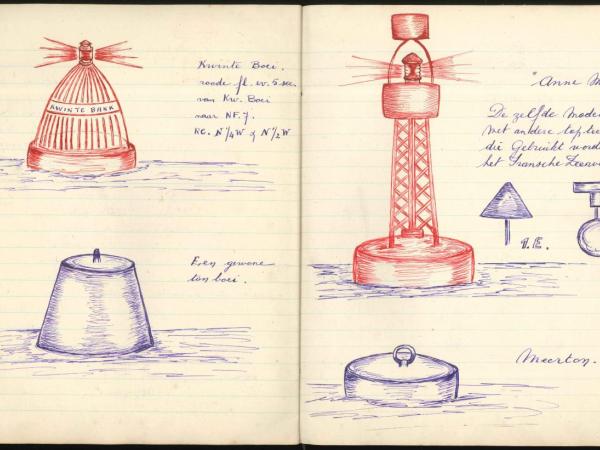 KWINTE BANK
Kwinte Boei.
roode fl. ev. 5 sec.
van Kw. Boei
naar NF. 7.
RC. N 1/4 W & N 1/2 W
Een gewone
ton boei.
"Anne M
De zelfde mode
met andere top te
die Gebruikt word
het Fransche Zeeva
Meerton.